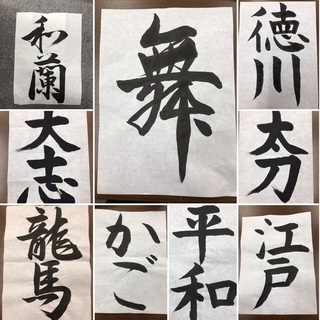 和蘭
舞
徳川
大志
太刀
龍馬
かご
平和
江戸